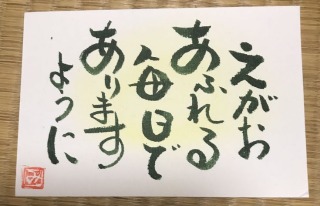 えがお
あふれる
毎日で
あります
ように